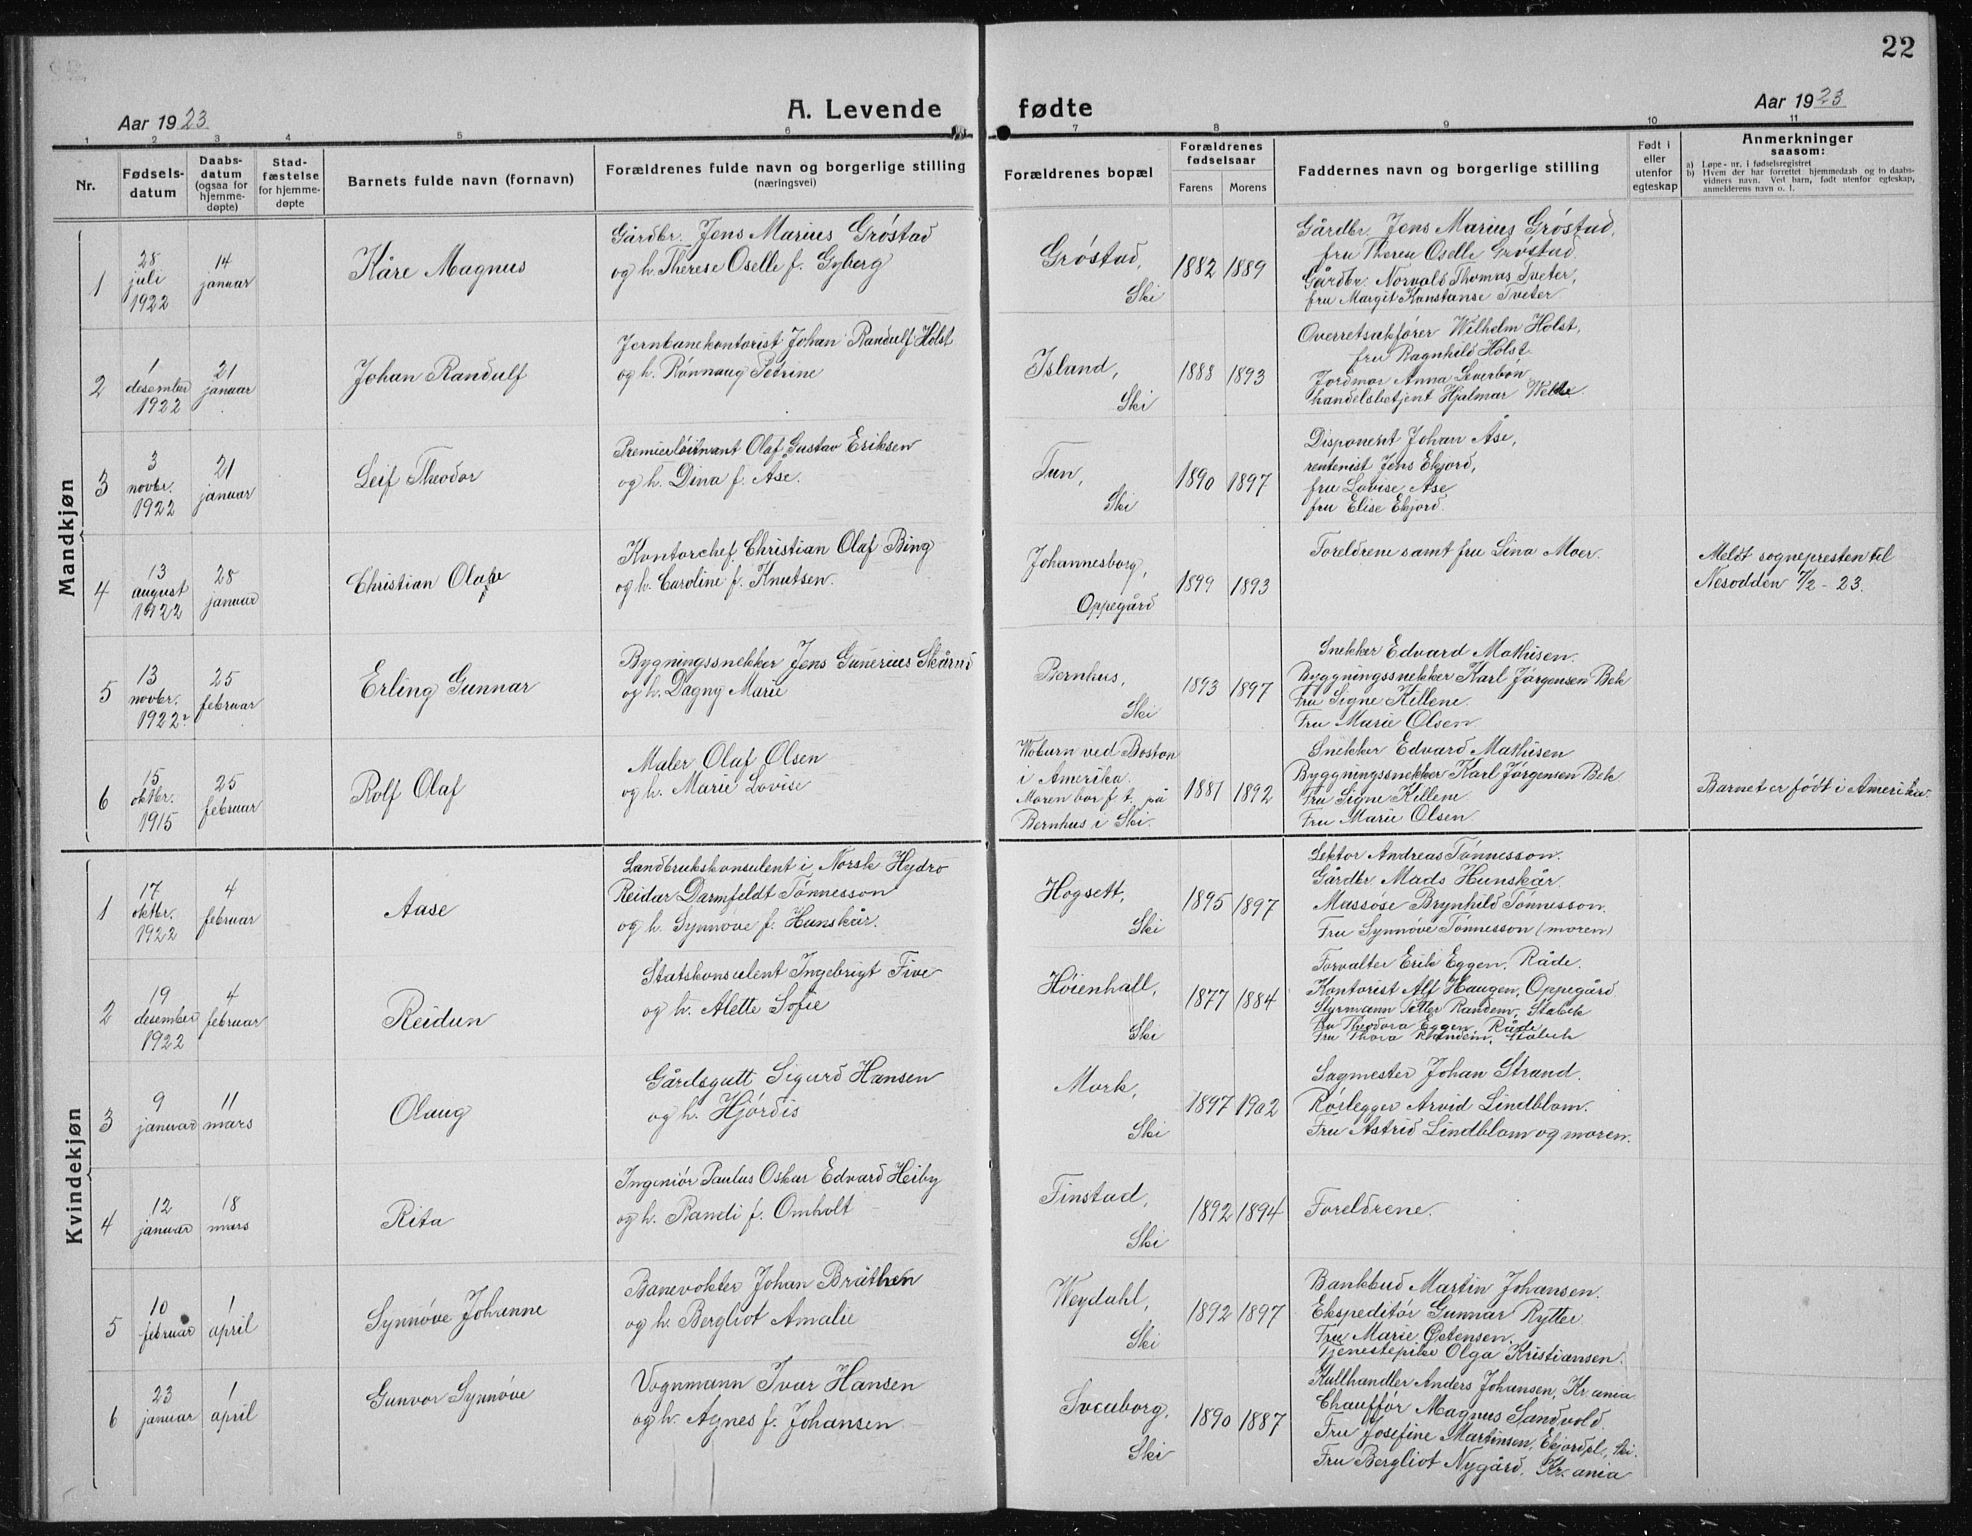 22
Aar 1923
A. Levende fødte
Aar 1923
1 2 3 4 5 6 7 8 9 10 11
Nr.
Fødsels-
datum
Daabs-
datum
(ogsaa for
hjemme-
døpte)
Stad-
fæstelse
for hjemme-
døpte
Barnets fulde navn (fornavn)
Forældrenes fulde navn og borgerlige stilling
(næringsvei)
Forældrenes bopæl
Forældrenes
fødselsaar
Farens Morens
Faddernes navn og borgerlige stilling
Født i
eller
utenfor
egteskap
Anmerkninger
saasom:
a) Løpe-nr. i fødselsregistret
b) Hvem der har forrettet hjemmedaab og to daabs-
vidners navn. Ved barn, født utenfor egteskap,
anmelderens navn o. l.
Mandkjøn
1
28
juli
1922
14
januar
Kåre Magnus
Gårdbr. Jens Marius Grøstad
og h. Therese Oselle f. Gyberg
Grøstad,
Ski
1882 1889
Gårdbr. Jens Marius Grøstad,
fru Therese Oselle Grøstad.
Gårdbr. Norvald Thomas Tveter,
fru Margit Konstanse Tveter
2
1
desember
1922
21
januar
Johan Randulf
Jernbanekontorist Johan Randulf Holst
og h. Rønnaug Petrine
Island,
Ski
1888 1893
Overretsakfører Wilhelm Holst,
fru Ragnhild Holst
Jordmor Anna Leverbøn
handelsbetjent Hjalmar
3
3
novbr.
1922
21
januar
Leif Theodor
Premierløitnant Olaf Gustav Eriksen
og h. Dina f. Åse.
Tun,
Ski
1890 1897
Disponent Johan Åse,
rentenist Jens Ekjord,
fru Lovise Åse
fru Elise Ekjord.
4
13
august
1922
28
januar
Christian Olav
Kontorchef Christian Olaf Bing
og h. Caroline f. Knutsen.
Johannesborg,
Oppegård
1899 1893
Foreldrene samt fru Lina Moer.
Meldt sognepresten til
Nesodden 7/2 - 23.
5
13
novbr.
1922
25
februar
Erling Gunnar
Bygningssnekker Jens Gunerius Skårud
og h. Dagny Marie
Bernhus,
Ski
1893 1897
Snekker Edvard Mathisen.
Byggningssnekker Karl Jørgensen Bek
Fru Signe Killene.
Fru Marie Olsen
6
15
oktbr.
1915
25
februar
Rolf Olaf
Maler Olaf Olsen
og h. Marie Lovise
Woburn ved Boston
i Amerika.
Moren bor f. t. på
Bernhus i Ski.
1881 1892
Snekker Edvard Mathisen
Byggningssnekker Karl Jørgensen Bek
Fru Signe Killene
Fru Marie Olsen.
Barnet er født i Amerika.
Kvindekjøn
1
17
oktbr.
1922
4
februar
Aase
Landbrukskonsulent i Norsk Hydro
Reidar Darmfeldt Tønnesson
og h. Synnøve f. Hunskår.
Hogsett,
Ski
1895 1897
Lektor Andreas Tønnesson.
Gårdbr Mads Hunskår
Massøse Brynhild Tønnesson.
Fru Synnøve Tønnesson (moren)
2
19
desember
1922
4
februar
Reidun
Statskonsulent Ingebrigt Five
og h. Alette Sofie
Høienhall,
Ski
1877 1884
Forvalter Erik Eggen, Råde.
Kontorist Alf Haugen, Oppegård
Styrmann Petter Randem, Stabek
Fru Theodora Eggen, Råde
Fru Thora Randem, Stabek
3
9
januar
11
mars
Olaug
Gårdsgutt Sigurd Hansen
og h. Hjørdis
Mork,
Ski
1897 1902
Sagmester Johan Strand.
Rørlegger Arvid Lindblom.
Fru Astrid Lindblom og moren.
4
12
januar
18
mars
Rita
Ingeniør Paulus Oskar Edvard Heiby
og h. Randi f. Omholt
Finstad,
Ski
1892 1894
Foreldrene.
5
10
februar
1
april
Synnøve Johanne
Banevokter Johan Bråthen
og h. Bergliot Amalie
Weydahl,
Ski
1892 1897
Bankbud Martin Johansen.
Ekspeditør Gunnar Rytter
Fru Marie Østensen,
Tjenestepike Olga Kristiansen.
6
23
januar
1
april
Gunvor Synnøve
Vognmann Ivar Hansen
og h. Agnes f. Johansen
Sveaborg,
Ski
1890 1887
Kullhandler Anders Johansen, Kr.ania
Chauffør Magnus Sandvold
Fru Josefine Martinsen, Ekjordet, Ski.
Fru Bergliot Nygård, Kr.ania